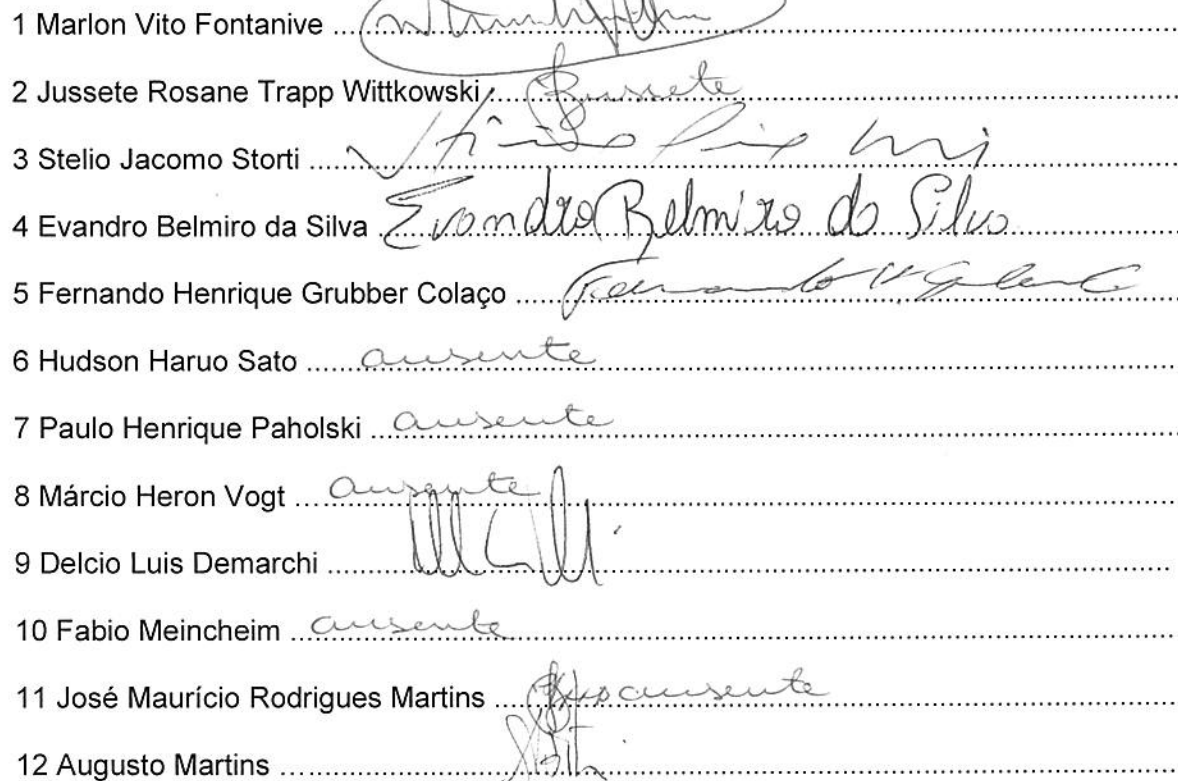 1 Marlon Vito Fontanive ...
2 Jussete Rosane Trapp Wittkowski ... Jussete
3 Stelio Jacomo Storti ...
4 Evandro Belmiro da Silva ... Evandro Belmiro da Silva
5 Fernando Henrique Grubber Colaço ... Fernando H
6 Hudson Haruo Sato ... ausente
7 Paulo Henrique Paholski ... ausente
8 Márcio Heron Vogt ... ausente
9 Delcio Luis Demarchi ...
10 Fabio Meincheim ... ausente
11 José Maurício Rodrigues Martins ... ausente
12 Augusto Martins ...